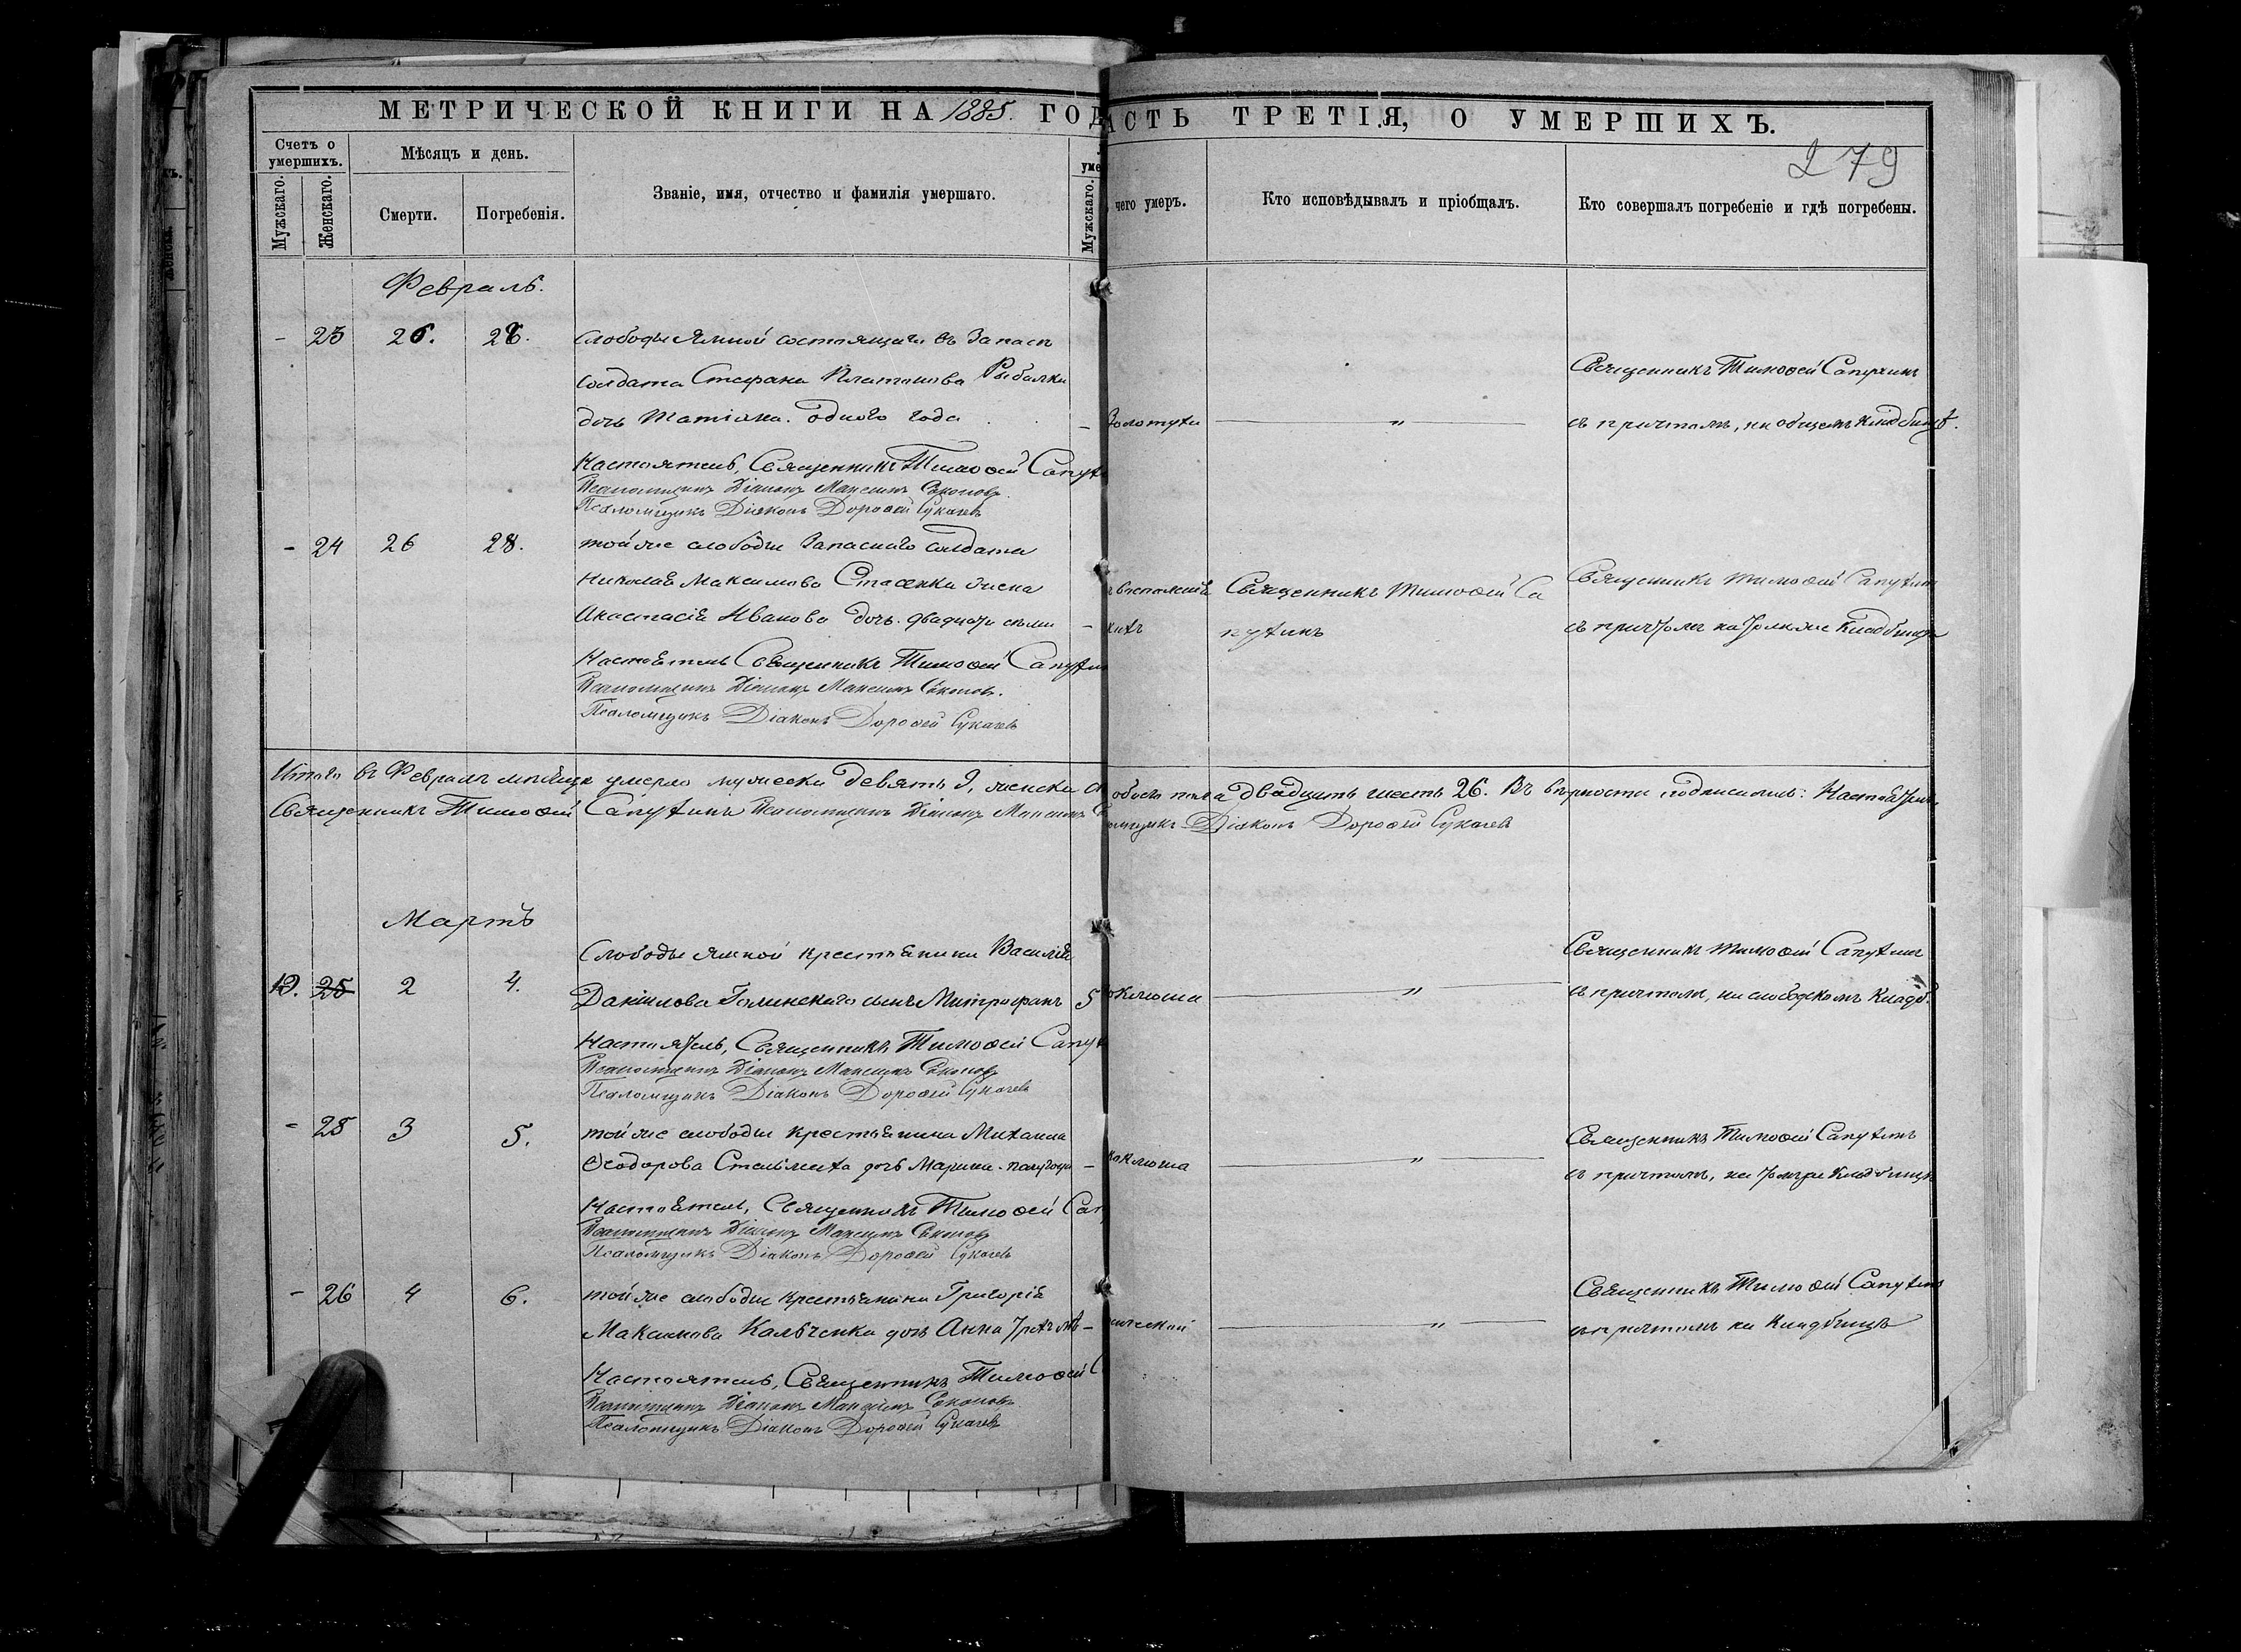 МЕТРИЧЕСКОЙ КНИГИ НА 1885. ГОД
Счетъ о умершихъ.
Мужскаго.
Женскаго.
Мѣсяцъ и день.
Смерти.
Погребенія.
Званіе, имя, отчество и фамилія умершаго.
уме
Мужскаго.
АСТЬ ТРЕТІЯ, О УМЕРШИХЪ.
279
чего умеръ.
Кто исповѣдывалъ и пріобщалъ.
Кто совершалъ погребеніе и гдѣ погребены.
Февраль.
- 23 26. 28. слободы Ямной состоящаго въ Запасѣ
солдата Стефана Платонова Рыбалки
дочь Татіана. одного года - Золотухи "
Священникъ Тимоѳей Сапухинъ
съ причтомъ, на общемъ кладбищѣ.
Настоятель, Священникъ Тимоѳей Сапух
Псаломщикъ Діаконъ Максимъ
Псаломщикъ Діаконъ Дороѳей Сукачевъ
- 24 26 28. той же слободы Запаснаго солдата
Николая Максимова Стасенка жена
Анастасія Иванова дочь. двадцати семи -
Священникъ Тимоѳей Са
пухинъ
Священникъ Тимоѳей Сапухин
съ причтомъ на томже Кладбищѣ
Настоятель Священникъ Тимоѳей Сапухин
Псаломщикъ Діаконъ Максимъ
Псаломщикъ Діаконъ Дороѳей Сукачевъ
Итого въ Февралѣ мѣсяцѣ умерло мужеска девять 9, женска обоего пола двадцать шесть 26. Въ вѣрности подписались: Настоятель
Священникъ Тимоѳей Сапухинъ Псаломщикъ Діаконъ Максимъ омщикъ Діаконъ Дороѳей Сукачевъ
Мартъ
Слободы Ямной крестьянина Василія
10. 25 2 4. Даніилова Голинскаго сынъ Митрофанъ 5 оклюша "
Священникъ Тимоѳей Сапухин
съ причтомъ, на слободскомъ Кладб.
Настоятель, Священникъ Тимоѳей Сапух
Псаломщикъ Діаконъ Максимъ
Псаломщикъ Діаконъ Дороѳей Сукачевъ
- 25 3 5. той же слободы крестьянина Михаила
Ѳеодорова дочь Марина - полугода - Коклюша "
Священникъ Тимоѳей Сапухинъ
съ причтомъ, на томже Кладбищѣ
Настоятель, Священникъ Тимоѳей Сап
Псаломщикъ Діаконъ Максимъ
Псаломщикъ Діаконъ Дороѳей Сукачевъ
- 26 4 6. той же слободы крестьянина Григорія
Максимова Кальченка дочь Анна трехъ лѣтъ - "
Священникъ Тимоѳей Сапухинъ
съ причтомъ на Кладбищѣ
Настоятель, Священникъ Тимоѳей С
Псаломщикъ Діаконъ Максимъ
Псаломщикъ Діаконъ Дороѳей Сукачевъ